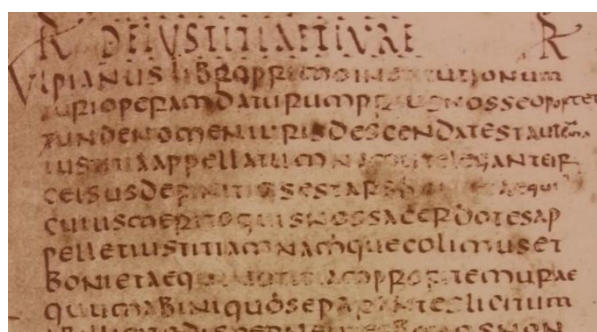 R DEIUSTITIAETIURE R
VLPIANUSLIBROPRIMOINSTITUTIONUM
IURIOPERAMDATURUMPRIUSNOSSEOPORTET
UNDENOMENIURISDESCENDATESTAUTEMA
IUSTITIAAPPELLATUMNAMUTELEGANTER
CELSUSDEFINITIUSESTARSBONIETAEQUI
CUIUSMERITOQUISNOSSACERDOTESAP
PELLETIUSTITIAMNAMQUECOLIMUSET
BONIETAEQUINOTITIAMPROFITEMURAE
QUUMABINIQUOSEPARANTESLICITUM